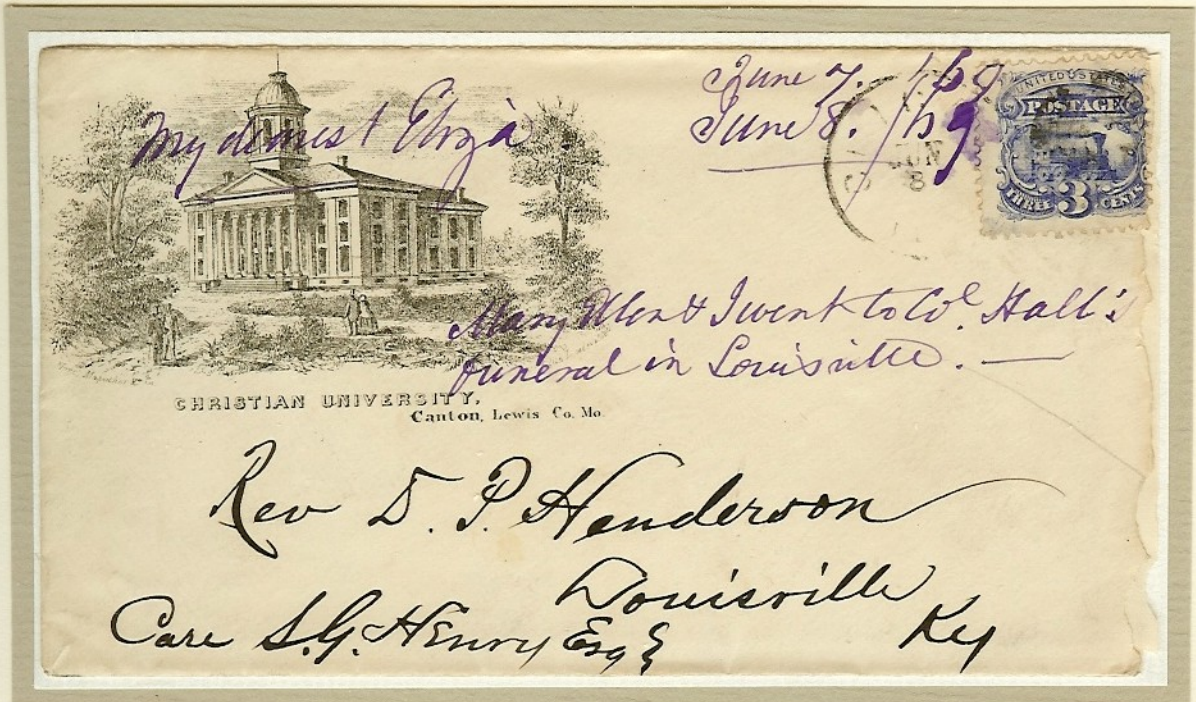 June 7. /69
June 8. /69
My dearest Eliza
UNITED STATES
POSTAGE
THREE 3 CENTS
JUN
8
Mary Allen & I went to Col. Hall's
funeral in Louisville. —
CHRISTIAN UNIVERSITY,
Canton, Lewis Co. Mo.
Rev D. P. Henderson
Louisville
Care S. G. Henry Esq
Ky